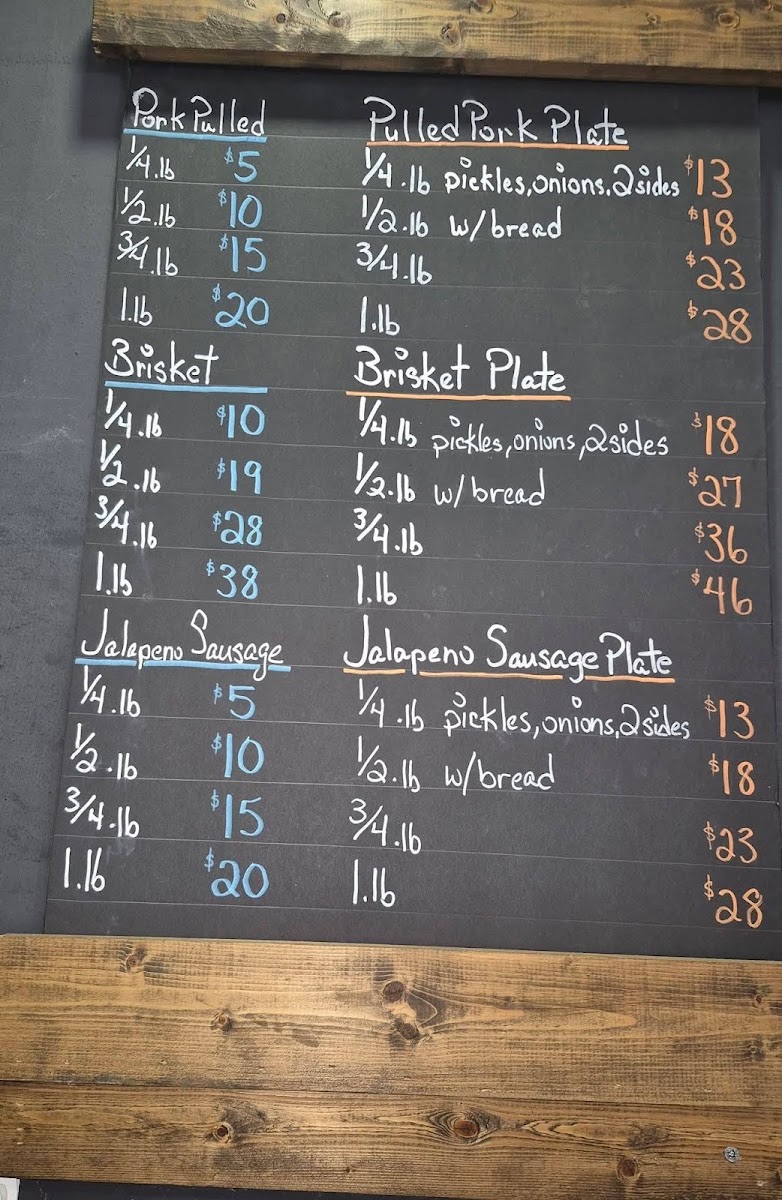 Pork Pulled
1/4.lb $5
1/2.lb $10
3/4.lb $15
1.lb $20
Brisket
1/4.lb $10
1/2.lb $19
3/4.lb $28
1.lb $38
Jalapeno Sausage
1/4.lb $5
1/2.lb $10
3/4.lb $15
1.lb $20
Pulled Pork Plate
1/4.lb pickles, onions, 2 sides $13
1/2.lb w/bread $18
3/4.lb $23
1.lb $28
Brisket Plate
1/4.lb pickles, onions, 2 sides $18
1/2.lb w/bread $27
3/4.lb $36
1.lb $46
Jalapeno Sausage Plate
1/4.lb pickles, onions, 2 sides $13
1/2.lb w/bread $18
3/4.lb $23
1.lb $28